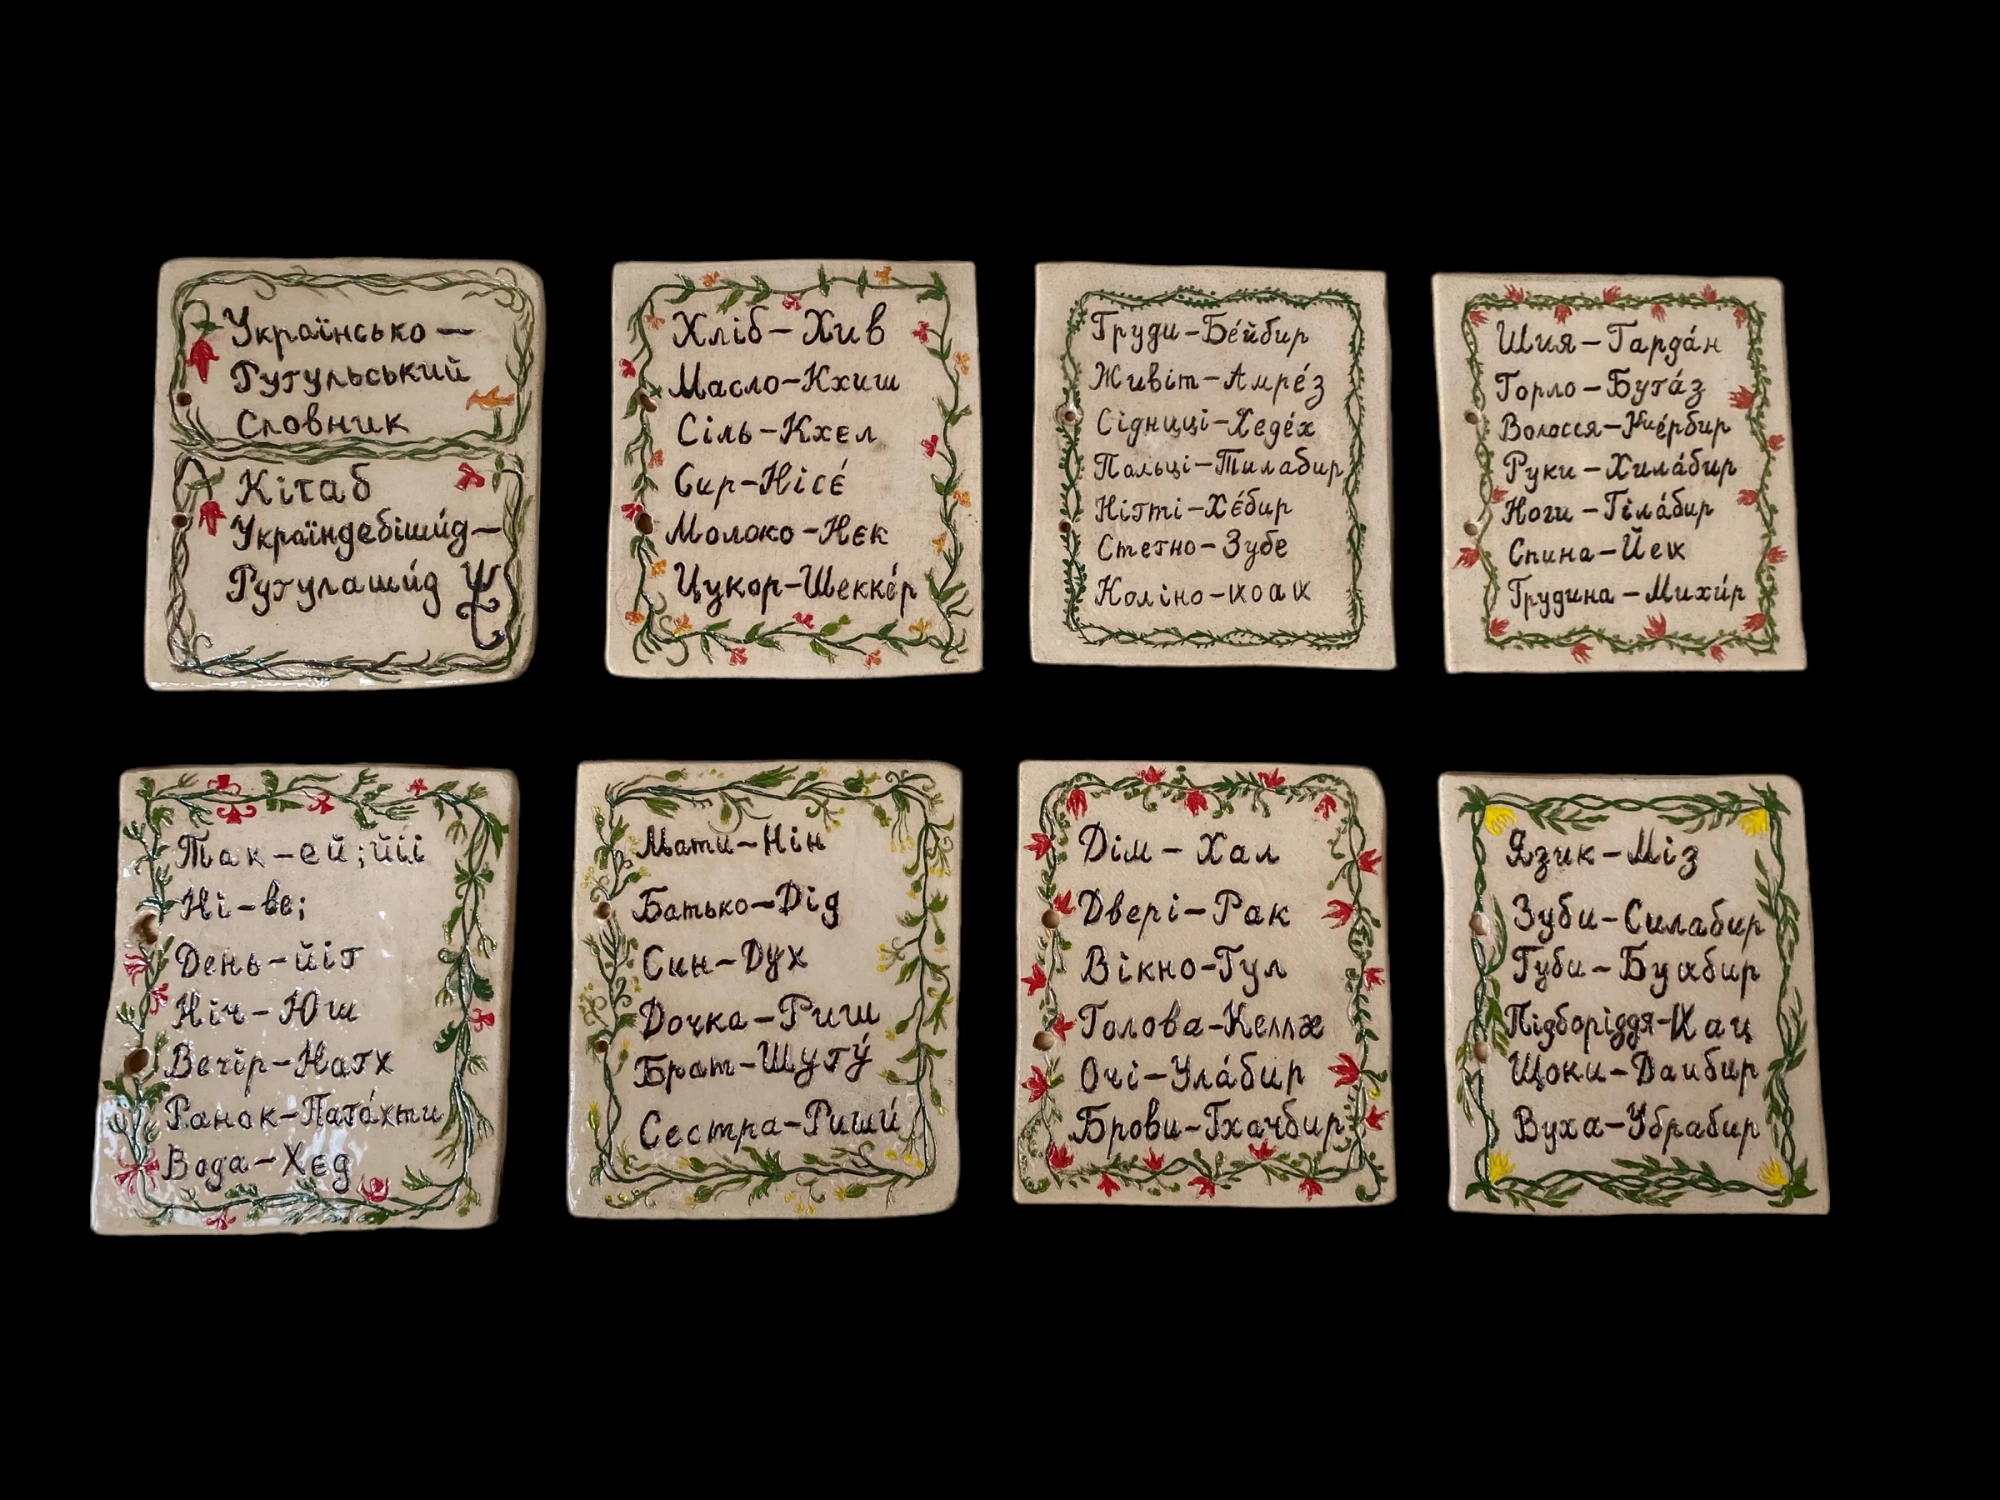 Українсько—
Рутульський
Словник
Кітаб
Україндебіши́д—
Рутулаши́д
Хліб—Хив
Масло—Кхиш
Сіль—Кхєл
Сир—Нісе́
Молоко—Нєк
Цукор—Шекке́р
Груди—Бе́йбир
Живіт—Амре́з
Сідниці—Хеде́х
Пальці—Тилабир
Нігті—Хе́бир
Стегно—Зубе
Коліно—
Шия—Гарда́н
Горло—Буга́з
Волосся—
Руки—Хила́бир
Ноги—Гіла́бир
Спина—
Грудина—Михи́р
Так—ей;йіі
Ні—ве;
День—йіг
Ніч—Юш
Вечір—Нагх
Ранок—Пага́хти
Вода—Хєд
Мати—Нін
Батько—Дід
Син—Дух
Дочка—Риш
Брат—Шугу́
Сестра—Риши́
Дім—Хал
Двері—Рак
Вікно—Гул
Голова—
Очі—Ула́бир
Брови—Гхачбир
Язик—Міз
Зуби—Силабир
Губи—
Підборіддя—
Щоки—Даибир
Вуха—Убрабир